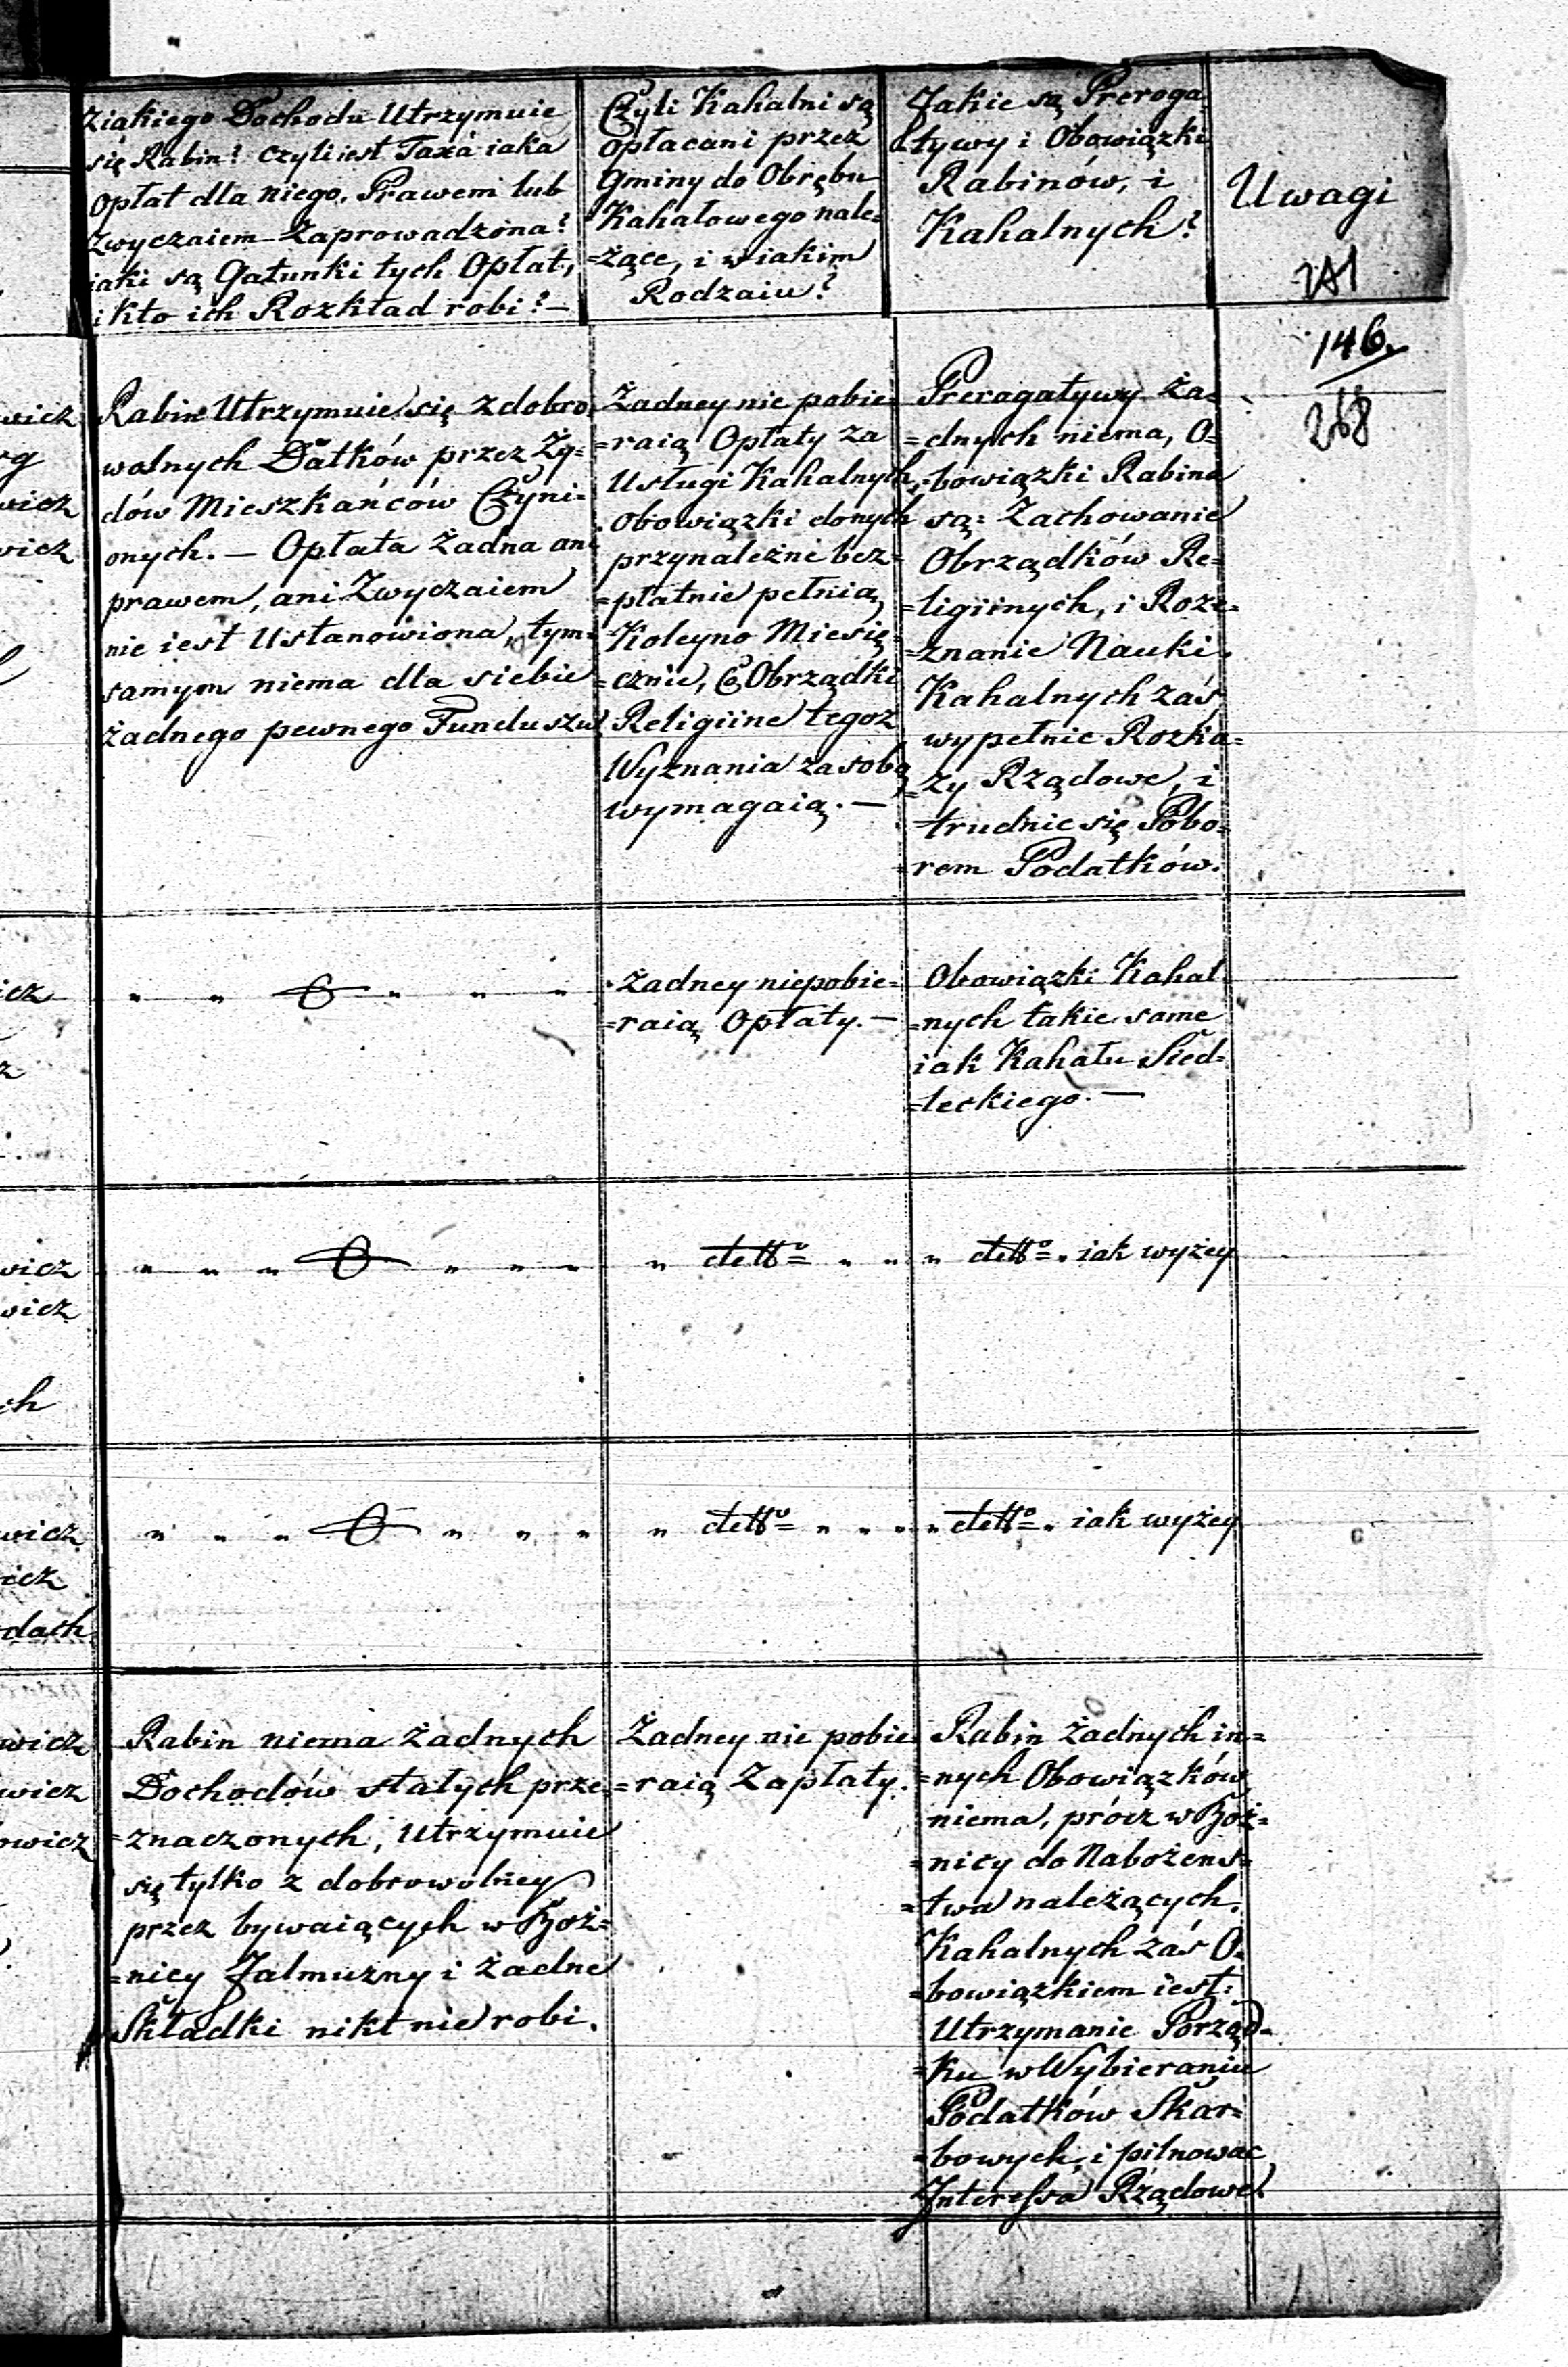 Ziakiego Dochodu Utrzymuie
się Rabin? czyli iest Taxa iaka
Opłat dla niego, Prawem lub
Zwyczaiem Zaprowadzona?
iaki są Gatunki tych Opłat,
i kto ich Rozkład robi? —
Czyli Kahalni są
opłacani przez
Gminy do Obrębu
Kahałowego nale=
=żące, i w iakim
Rodzaiu?
Jakie są Preroga
tywy i Obowiązki
Rabinów, i
Kahalnych?
Uwagi
146.
268
wicz
wicz
wicz
Rabin Utrzymuie się z dobro
wolnych Datków przez Ży=
dów Mieszkańców Czyni=
onych. — Opłata Żadna ani
prawem, ani Zwyczaiem
nie iest Ustanowiona, tym=
samym niema dla siebie
żadnego pewnego Funduszu
Żadney nie pobie=
=raią Opłaty za
Usługi Kahalnych,
obowiązki do nych
przynależne bez=
=płatnie pełnią
Koleyno Miesię=
=cznie, Co Obrządki
Religiine tegoż
Wyznania za sobą
wymagaią. —
Preragatywy Ża=
=dnych niema, O=
=bowiązki Rabina
są: Zachowanie
Obrządków Re=
=ligiinych, i Roze=
=znanie Nauki.
Kahalnych zaś
wypełnic Rozka=
=zy Rządowe, i
trudnic się Pobo=
=rem Podatków.
icz
" " O " " "
Żadney niepobie=
=raią Opłaty. —
Obowiązki Kahal
=nych takie same
iak Kahału Sied=
=leckiego. —
wicz
wicz
ch
" " " O " " "
" detto " " "
" detto " iak wyżey
wicz
icz
dach
" " " O " " "
" detto " " "
" detto " iak wyżey
wicz
wicz
owicz
Rabin niema żadnych
Dochodów stałych prze=
=znaczonych, utrzymuie
się tylko z dobrowolney
przez bywaiących w Boż=
=nicy Jalmużny i żadne
Składki nikt nie robi.
Żadney nie pobie
=raią Zapłaty.
Rabin żadnych in=
=nych Obowiązków
niema, prócz w Boż=
=nicy do Nabożens=
=twa należących.
Kahalnych zaś O=
=bowiązkiem iest:
Utrzymanie Porząd=
=ku w Wybieraniu
Podatków Skar=
=bowych, i pilnowac
Interessa Rządowe.